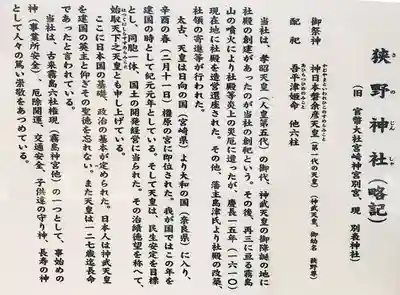 狹野神社（略記）
さのじんじゃ
（旧 官幣大社宮崎神宮別宮、現 別表神社）
御祭神
神日本磐余彦天皇（第一代の天皇）（神武天皇、御幼名 狹野尊）
かむやまといわれひこのすめらみこと
配祀
吾平津姫命 他六柱
当社は、孝昭天皇（人皇第五代）の御代、神武天皇の御降誕の地に
社殿の創建があったのが当社の創祀という。その後、再三に亘る霧島
山の噴火により社殿等炎上の災厄に遭ったが、慶長一五年（一六一〇）
現在地に社殿を造営還座された。その他、藩主島津氏より社殿の改築、
社領の寄進等が行われた。
太古、天皇は日向の国（宮崎県）より大和の国（奈良県）に入り、
辛酉の春（二月十一日）橿原の宮に即位された。我が国ではこの年を
建国の時として紀元元年としている。そして天皇は、民生安定を目標
とし、同胞一体、国土の開発経営に当られた。その治績徳望を称へて、
始馭天下之天皇とも申し上げている。
はつくにしらすすめらみこと
ここに日本国の基礎、政治の基本が定められた。日本人は神武天皇
を建国の英主と仰ぎその聖徳を忘れない。また天皇は一二七歳迄長命
であったと言われている。
当社は、古来霧島六社権現（霧島神宮他）の一つとして、事始めの
神（事業所安全）、厄除開運、交通安全、子供達の守り神、長寿の神
として人々の篤い崇敬をあつめている。